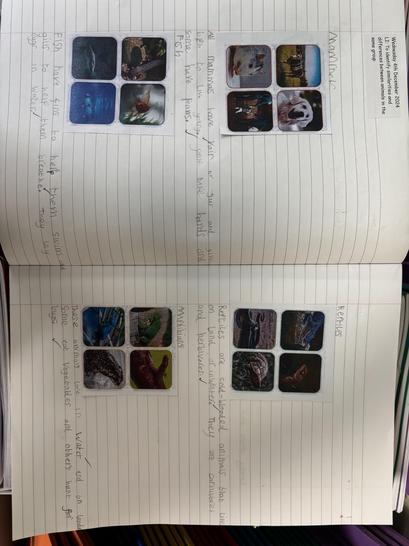 Wednesday 4th December 2024
LI: To identify similarities and
differences between animals in the
same group
Mammals
All mammals have hair or fur and give
birth to live young. Some have hands and
some have paws.
Fish
Fish have fins to help them swim and
gills to help them breathe. They lay
eggs in water.
Reptiles
Reptiles are cold-blooded animals that live
on land or water. They are carnivores
and herbivores.
These animals live in water and on land.
Some eat vegetables and others hunt for